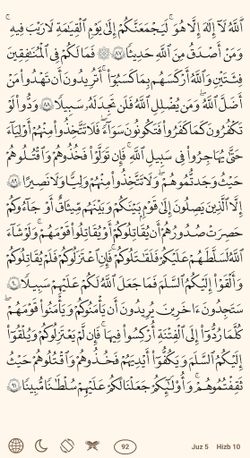 ٱللَّهُ لَآ إِلَٰهَ إِلَّا هُوَ ۚ لَيَجْمَعَنَّكُمْ إِلَىٰ يَوْمِ ٱلْقِيَٰمَةِ لَا رَيْبَ فِيهِ ۗ
وَمَنْ أَصْدَقُ مِنَ ٱللَّهِ حَدِيثًا ٨٧ ۞ فَمَا لَكُمْ فِى ٱلْمُنَٰفِقِينَ
فِئَتَيْنِ وَٱللَّهُ أَرْكَسَهُم بِمَا كَسَبُوٓا۟ ۚ أَتُرِيدُونَ أَن تَهْدُوا۟ مَنْ
أَضَلَّ ٱللَّهُ ۖ وَمَن يُضْلِلِ ٱللَّهُ فَلَن تَجِدَ لَهُۥ سَبِيلًا ٨٨ وَدُّوا۟ لَوْ
تَكْفُرُونَ كَمَا كَفَرُوا۟ فَتَكُونُونَ سَوَآءً ۖ فَلَا تَتَّخِذُوا۟ مِنْهُمْ أَوْلِيَآءَ
حَتَّىٰ يُهَاجِرُوا۟ فِى سَبِيلِ ٱللَّهِ ۚ فَإِن تَوَلَّوْا۟ فَخُذُوهُمْ وَٱقْتُلُوهُمْ
حَيْثُ وَجَدتُّمُوهُمْ ۖ وَلَا تَتَّخِذُوا۟ مِنْهُمْ وَلِيًّا وَلَا نَصِيرًا ٨٩
إِلَّا ٱلَّذِينَ يَصِلُونَ إِلَىٰ قَوْمٍۭ بَيْنَكُمْ وَبَيْنَهُم مِّيثَٰقٌ أَوْ جَآءُوكُمْ
حَصِرَتْ صُدُورُهُمْ أَن يُقَٰتِلُوكُمْ أَوْ يُقَٰتِلُوا۟ قَوْمَهُمْ ۚ وَلَوْ شَآءَ
ٱللَّهُ لَسَلَّطَهُمْ عَلَيْكُمْ فَلَقَٰتَلُوكُمْ ۚ فَإِنِ ٱعْتَزَلُوكُمْ فَلَمْ يُقَٰتِلُوكُمْ
وَأَلْقَوْا۟ إِلَيْكُمُ ٱلسَّلَمَ فَمَا جَعَلَ ٱللَّهُ لَكُمْ عَلَيْهِمْ سَبِيلًا ٩٠
سَتَجِدُونَ ءَاخَرِينَ يُرِيدُونَ أَن يَأْمَنُوكُمْ وَيَأْمَنُوا۟ قَوْمَهُمْ
كُلَّ مَا رُدُّوٓا۟ إِلَى ٱلْفِتْنَةِ أُرْكِسُوا۟ فِيهَا ۚ فَإِن لَّمْ يَعْتَزِلُوكُمْ وَيُلْقُوٓا۟
إِلَيْكُمُ ٱلسَّلَمَ وَيَكُفُّوٓا۟ أَيْدِيَهُمْ فَخُذُوهُمْ وَٱقْتُلُوهُمْ حَيْثُ
ثَقِفْتُمُوهُمْ ۚ وَأُو۟لَٰٓئِكُمْ جَعَلْنَا لَكُمْ عَلَيْهِمْ سُلْطَٰنًا مُّبِينًا ٩١
92 Juz 5 Hizb 10